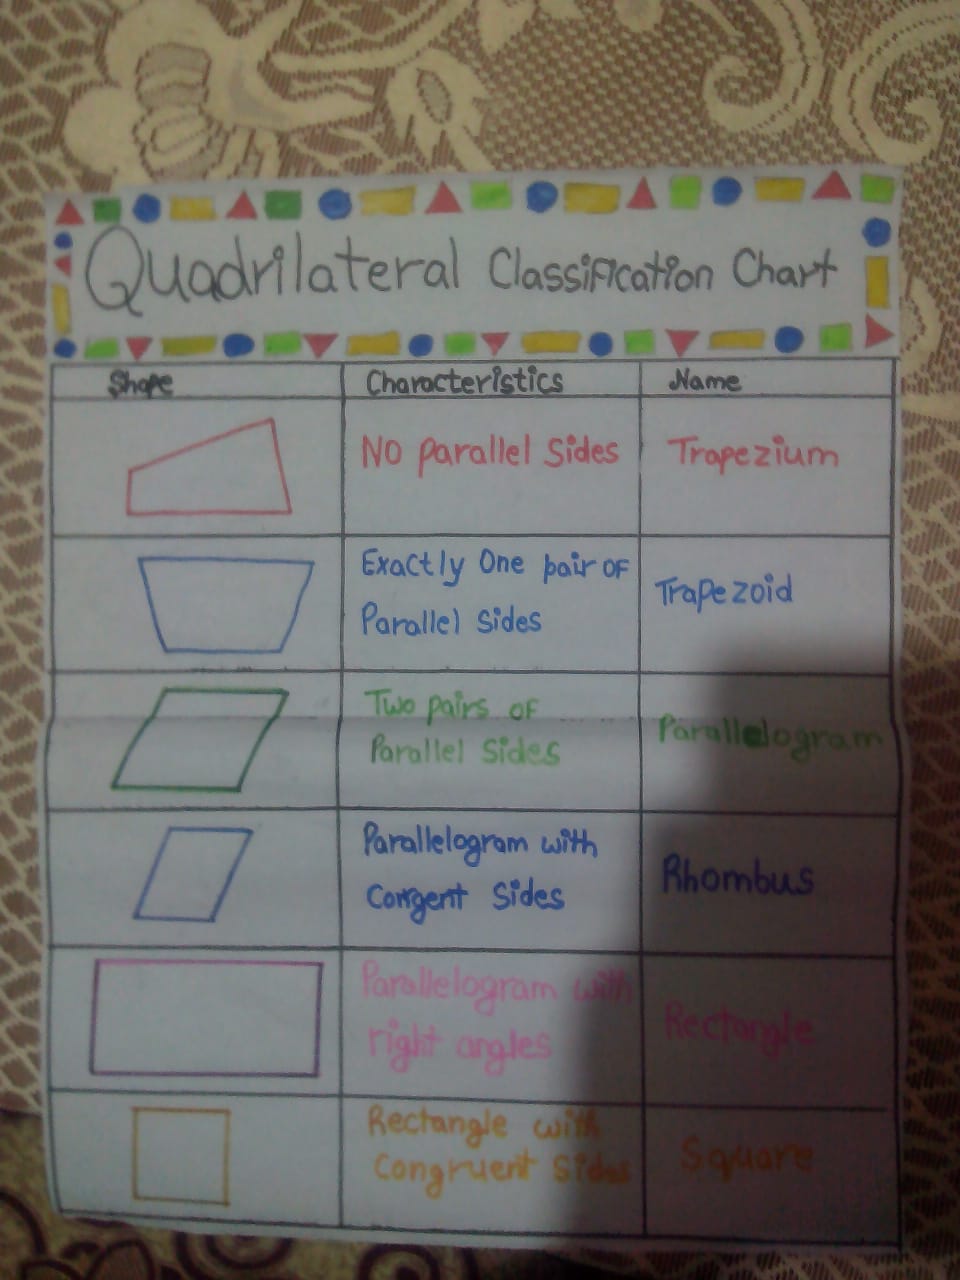 Quadrilateral Classification Chart
Shape Characteristics Name
No parallel Sides Trapezium
Exactly One pair of
Parallel Sides
Trapezoid
Two pairs of
Parallel Sides
Parallelogram
Parallelogram with
Congent Sides
Rhombus
Parallelogram with
right angles
Rectangle
Rectangle with
Congruent Sides
Square